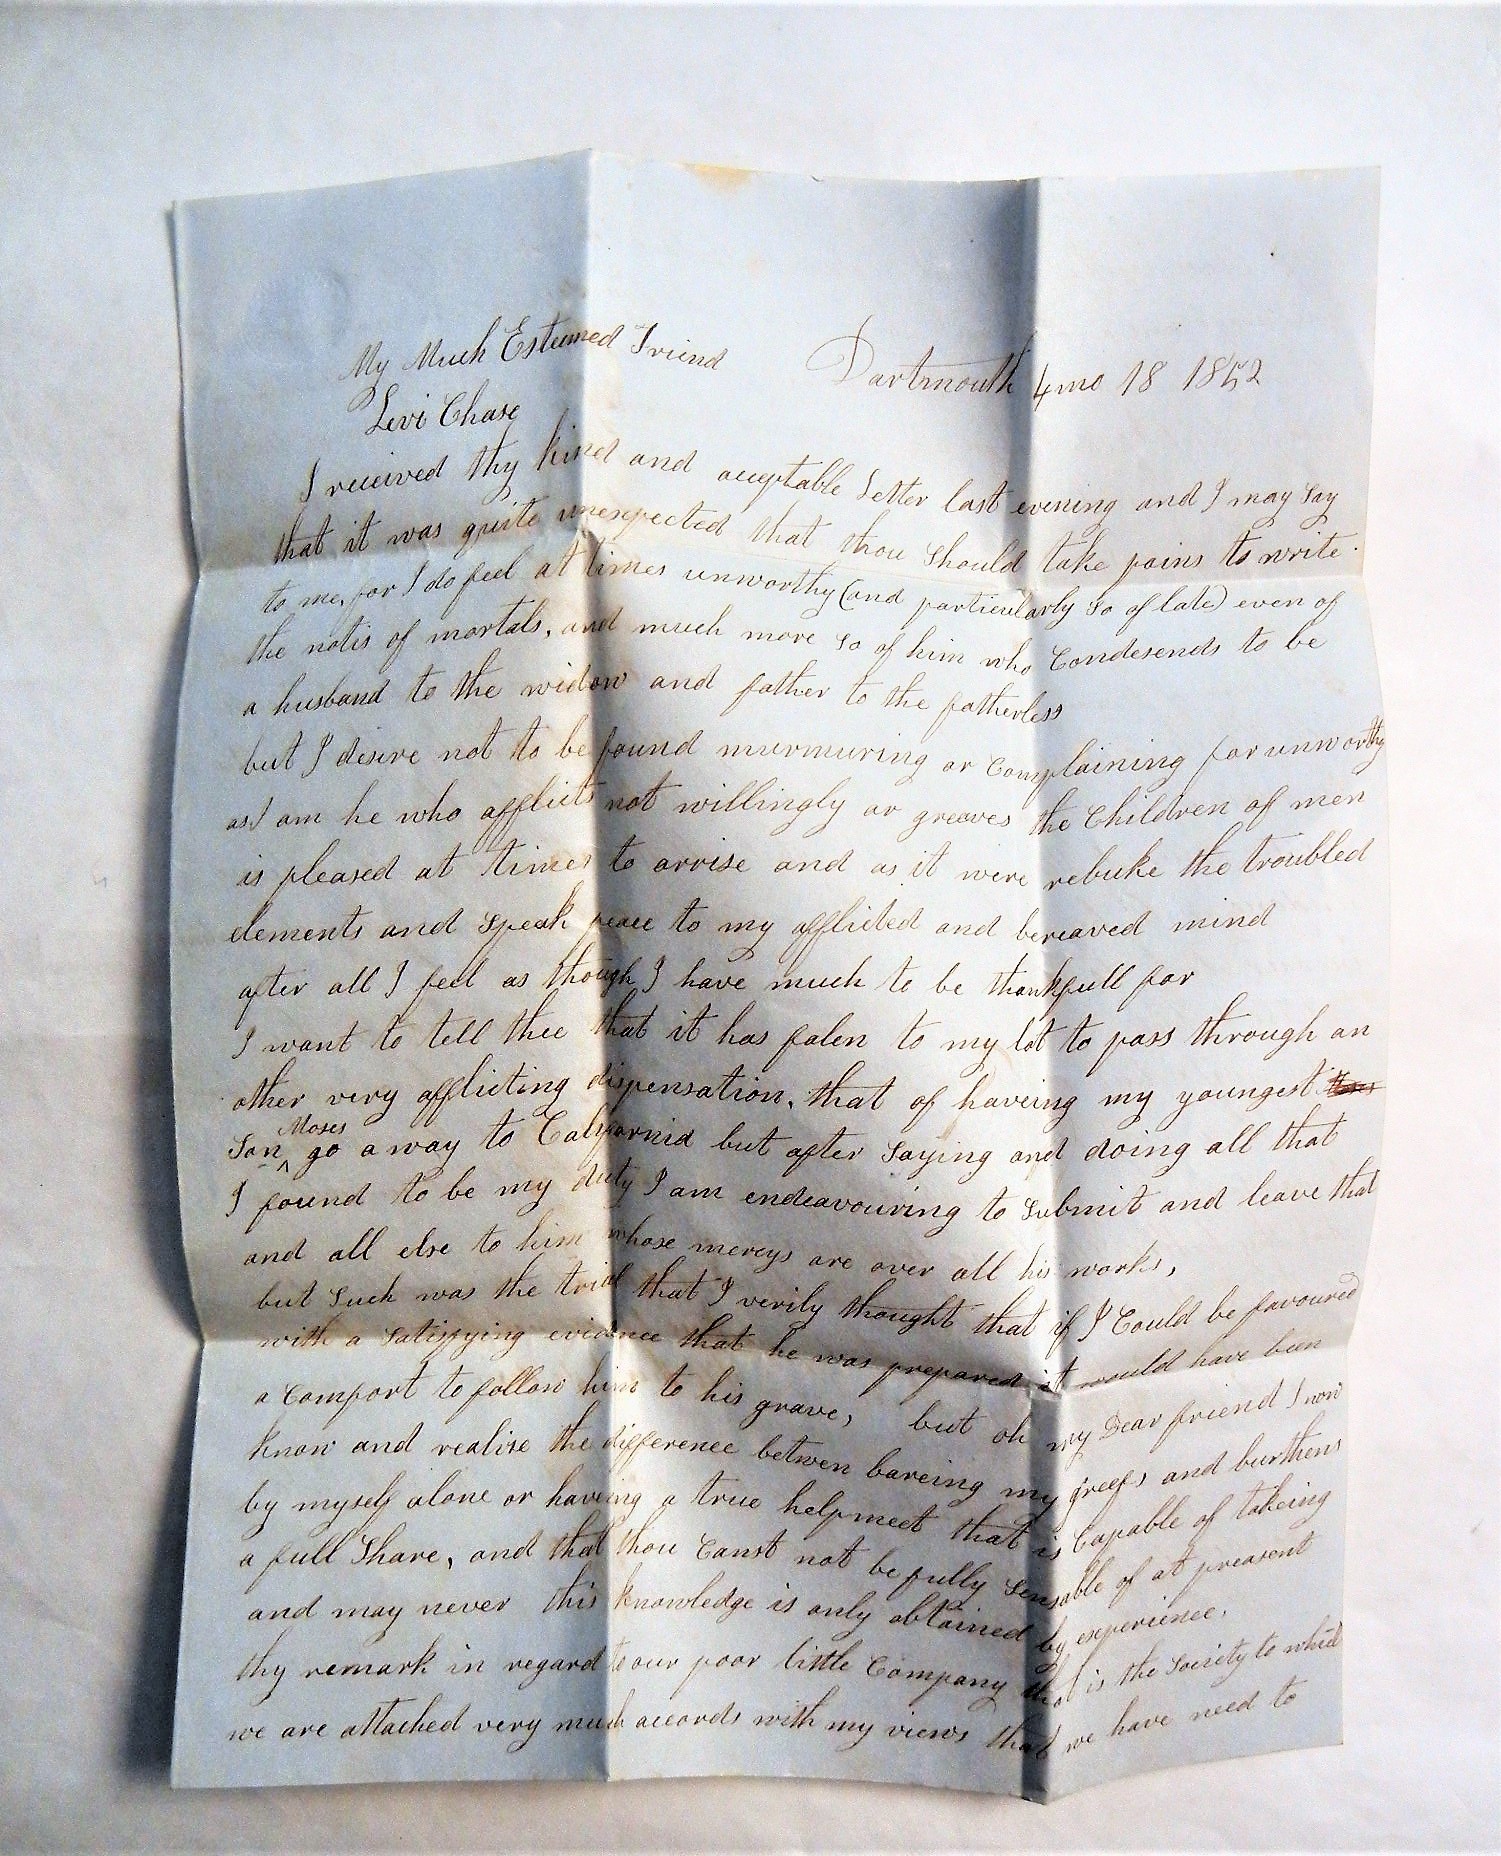 My Much Esteemed Friend Dartmouth 4mo 18 1852
Levi Chase
I received thy kind and acceptable Letter last evening and I may Say
that it was quite unexpected that thou Should take pains to write
to me, for I do feel at times unworthy (and particularly So of late) even of
the notis of mortals, and much more So of him who Condesends to be
a husband to the widow and father to the fatherless
but I desire not to be found murmuring or Complaining for unworthy
as I am he who afflicts not willingly or greaves the Children of men
is pleased at times to arrise and as it were rebuke the troubled
elements and Speak peace to my afflicted and bereaved mind
after all I feel as though I have much to be thankfull for
I want to tell thee that it has falen to my lot to pass through an
other very afflicting dispensation, that of haveing my youngest
Son ^ Moses go a way to California but after Saying and doing all that
I found to be my duty I am endeavouring to Submit and leave that
and all else to him whose mercys are over all his works,
but Such was the trial that I verily thought that if I Could be favoured
with a Satisfying evidence that he was prepared it would have been
a Comfort to follow him to his grave, but oh my Dear friend I now
know and realise the difference betwen bareing my greefs and burthens
by myself alone or haveing a true helpmeet that is Capable of takeing
a full Share, and that thou Canst not be fully Sensable of at preasent
and may never this knowledge is only obtained by experience.
thy remark in regard to our poor little Company that is the Soiciety to which
we are attached very much accords with my views that we have need to